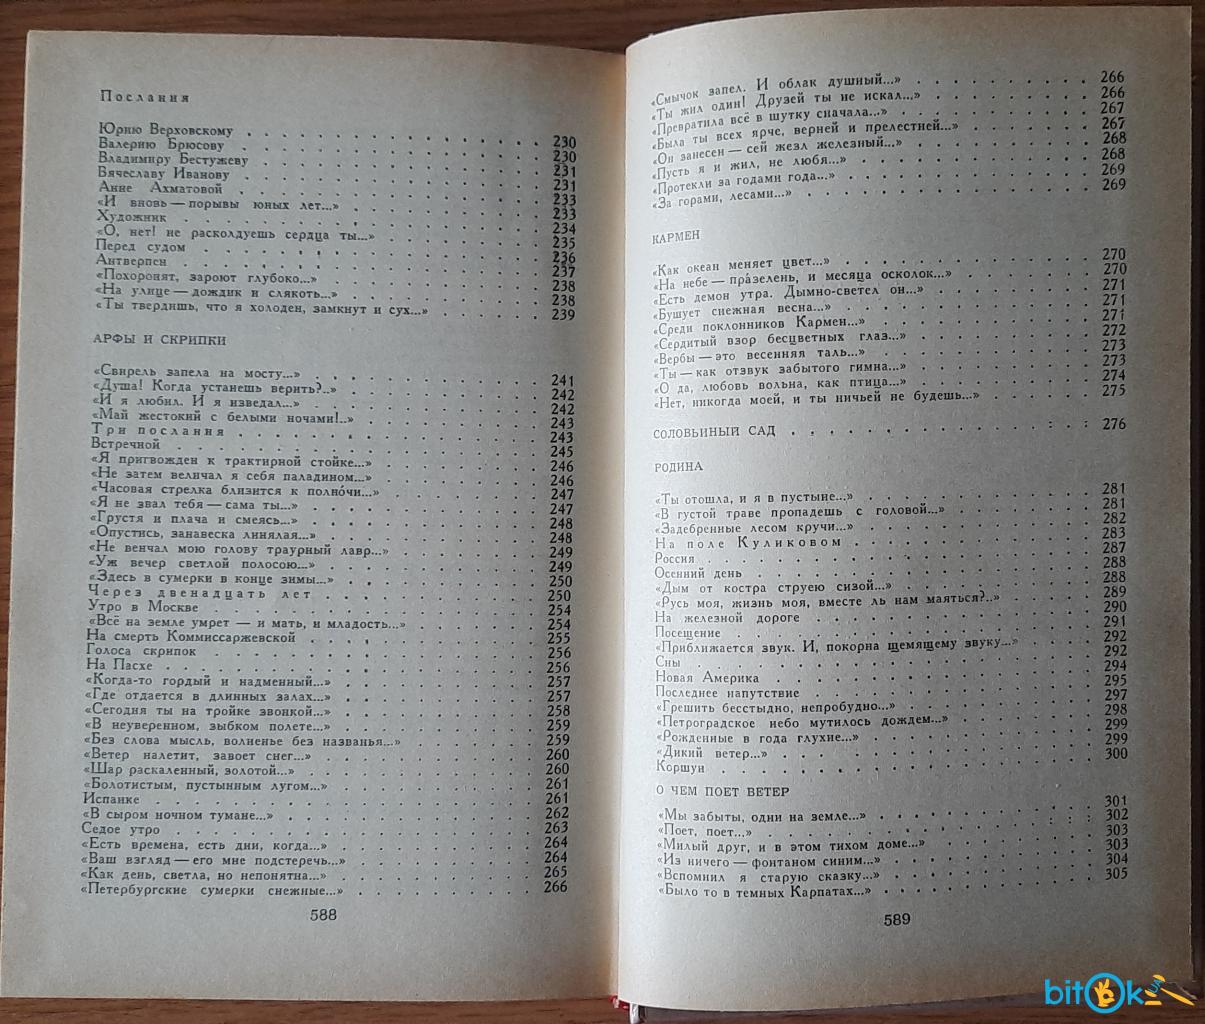 Послания
Юрию Верховскому . . . . . . . . . . 230
Валерию Брюсову . . . . . . . . . . 230
Владимиру Бестужеву . . . . . . . . . . 231
Вячеславу Иванову . . . . . . . . . . 231
Анне Ахматовой . . . . . . . . . . 233
«И вновь — порывы юных лет...» . . . . . . . . . . 233
Художник . . . . . . . . . . 234
«О, нет! не расколдуешь сердца ты...» . . . . . . . . . . 235
Перед судом . . . . . . . . . . 236
Антверпен . . . . . . . . . . 237
«Похоронят, зароют глубоко...» . . . . . . . . . . 238
«На улице — дождик и слякоть...» . . . . . . . . . . 238
«Ты твердишь, что я холоден, замкнут и сух...» . . . . . 239
АРФЫ И СКРИПКИ
«Свирель запела на мосту...» . . . . . . . . . . 241
«Душа! Когда устанешь верить?..» . . . . . . . . . . 242
«И я любил. И я изведал...» . . . . . . . . . . 242
«Май жестокий с белыми ночами!..» . . . . . . . . . . 243
Три послания . . . . . . . . . . 243
Встречной . . . . . . . . . . 245
«Я пригвожден к трактирной стойке...» . . . . . . . . . . 246
«Не затем величал я себя паладином...» . . . . . . . . . . 246
«Часовая стрелка близится к полно́чи...» . . . . . . . . . . 247
«Я не звал тебя — сама ты...» . . . . . . . . . . 247
«Грустя и плача и смеясь...» . . . . . . . . . . 248
«Опустись, занавеска линялая...» . . . . . . . . . . 248
«Не венчал мою голову траурный лавр...» . . . . . . . . . . 249
«Уж вечер светлой полосою...» . . . . . . . . . . 249
«Здесь в сумерки в конце зимы...» . . . . . . . . . . 250
Через двенадцать лет . . . . . . . . . . 250
Утро в Москве . . . . . . . . . . 254
«Всё на земле умрет — и мать, и младость...» . . . . . . . 254
На смерть Коммиссаржевской . . . . . . . . . . 255
Голоса скрипок . . . . . . . . . . 256
На Пасхе . . . . . . . . . . 256
«Когда-то гордый и надменный...» . . . . . . . . . . 257
«Где отдается в длинных залах...» . . . . . . . . . . 257
«Сегодня ты на тройке звонкой...» . . . . . . . . . . 258
«В неуверенном, зыбком полете...» . . . . . . . . . . 259
«Без слова мысль, волненье без названья...» . . . . . . . 259
«Ветер налетит, завоет снег...» . . . . . . . . . . 260
«Шар раскаленный, золотой...» . . . . . . . . . . 260
«Болотистым, пустынным лугом...» . . . . . . . . . . 261
Испанке . . . . . . . . . . 261
«В сыром ночном тумане...» . . . . . . . . . . 262
Седое утро . . . . . . . . . . 263
«Есть времена, есть дни, когда...» . . . . . . . . . . 264
«Ваш взгляд — его мне подстеречь...» . . . . . . . . . . 264
«Как день, светла, но непонятна...» . . . . . . . . . . 265
«Петербургские сумерки снежные...» . . . . . . . . . . 266
588
«Смычок запел. И облак душный...» . . . . . . . . . . 266
«Ты жил один! Друзей ты не искал...» . . . . . . . . . . 266
«Превратила всё в шутку сначала...» . . . . . . . . . . 267
«Была ты всех ярче, верней и прелестней...» . . . . . . . 267
«Он занесен — сей жезл железный...» . . . . . . . . . . 268
«Пусть я и жил, не любя...» . . . . . . . . . . 268
«Протекли за годами года...» . . . . . . . . . . 269
«За горами, лесами...» . . . . . . . . . . 269
КАРМЕН
«Как океан меняет цвет...» . . . . . . . . . . 270
«На небе — пра́зелень, и месяца осколок...» . . . . . . . 270
«Есть демон утра. Дымно-светел он...» . . . . . . . . . . 271
«Бушует снежная весна...» . . . . . . . . . . 271
«Среди поклонников Кармен...» . . . . . . . . . . 271
«Сердитый взор бесцветных глаз...» . . . . . . . . . . 272
«Вербы — это весенняя таль...» . . . . . . . . . . 273
«Ты — как отзвук забытого гимна...» . . . . . . . . . . 273
«О да, любовь вольна, как птица...» . . . . . . . . . . 274
«Нет, никогда моей, и ты ничьей не будешь...» . . . . . . 275
СОЛОВЬИНЫЙ САД . . . . . . . . . . 276
РОДИНА
«Ты отошла, и я в пустыне...» . . . . . . . . . . 281
«В густой траве пропадешь с головой...» . . . . . . . . . . 281
«Задебренные лесом кручи...» . . . . . . . . . . 282
На поле Куликовом . . . . . . . . . . 283
Россия . . . . . . . . . . 287
Осенний день . . . . . . . . . . 288
«Дым от костра струею сизой...» . . . . . . . . . . 288
«Русь моя, жизнь моя, вместе ль нам маяться?..» . . . . . 289
На железной дороге . . . . . . . . . . 290
Посещение . . . . . . . . . . 291
«Приближается звук. И, покорна щемящему звуку...» . . . . 292
Сны . . . . . . . . . . 292
Новая Америка . . . . . . . . . . 294
Последнее напутствие . . . . . . . . . . 295
«Грешить бесстыдно, непробудно...» . . . . . . . . . . 297
«Петроградское небо мутилось дождем...» . . . . . . . . . . 298
«Рожденные в года глухие...» . . . . . . . . . . 299
«Дикий ветер...» . . . . . . . . . . 299
Коршун . . . . . . . . . . 300
О ЧЕМ ПОЕТ ВЕТЕР
«Мы забыты, одни на земле...» . . . . . . . . . . 301
«Поет, поет...» . . . . . . . . . . 302
«Милый друг, и в этом тихом доме...» . . . . . . . . . . 303
«Из ничего — фонтаном синим...» . . . . . . . . . . 303
«Вспомнил я старую сказку...» . . . . . . . . . . 304
«Было то в темных Карпатах...» . . . . . . . . . . 305
589
bitok